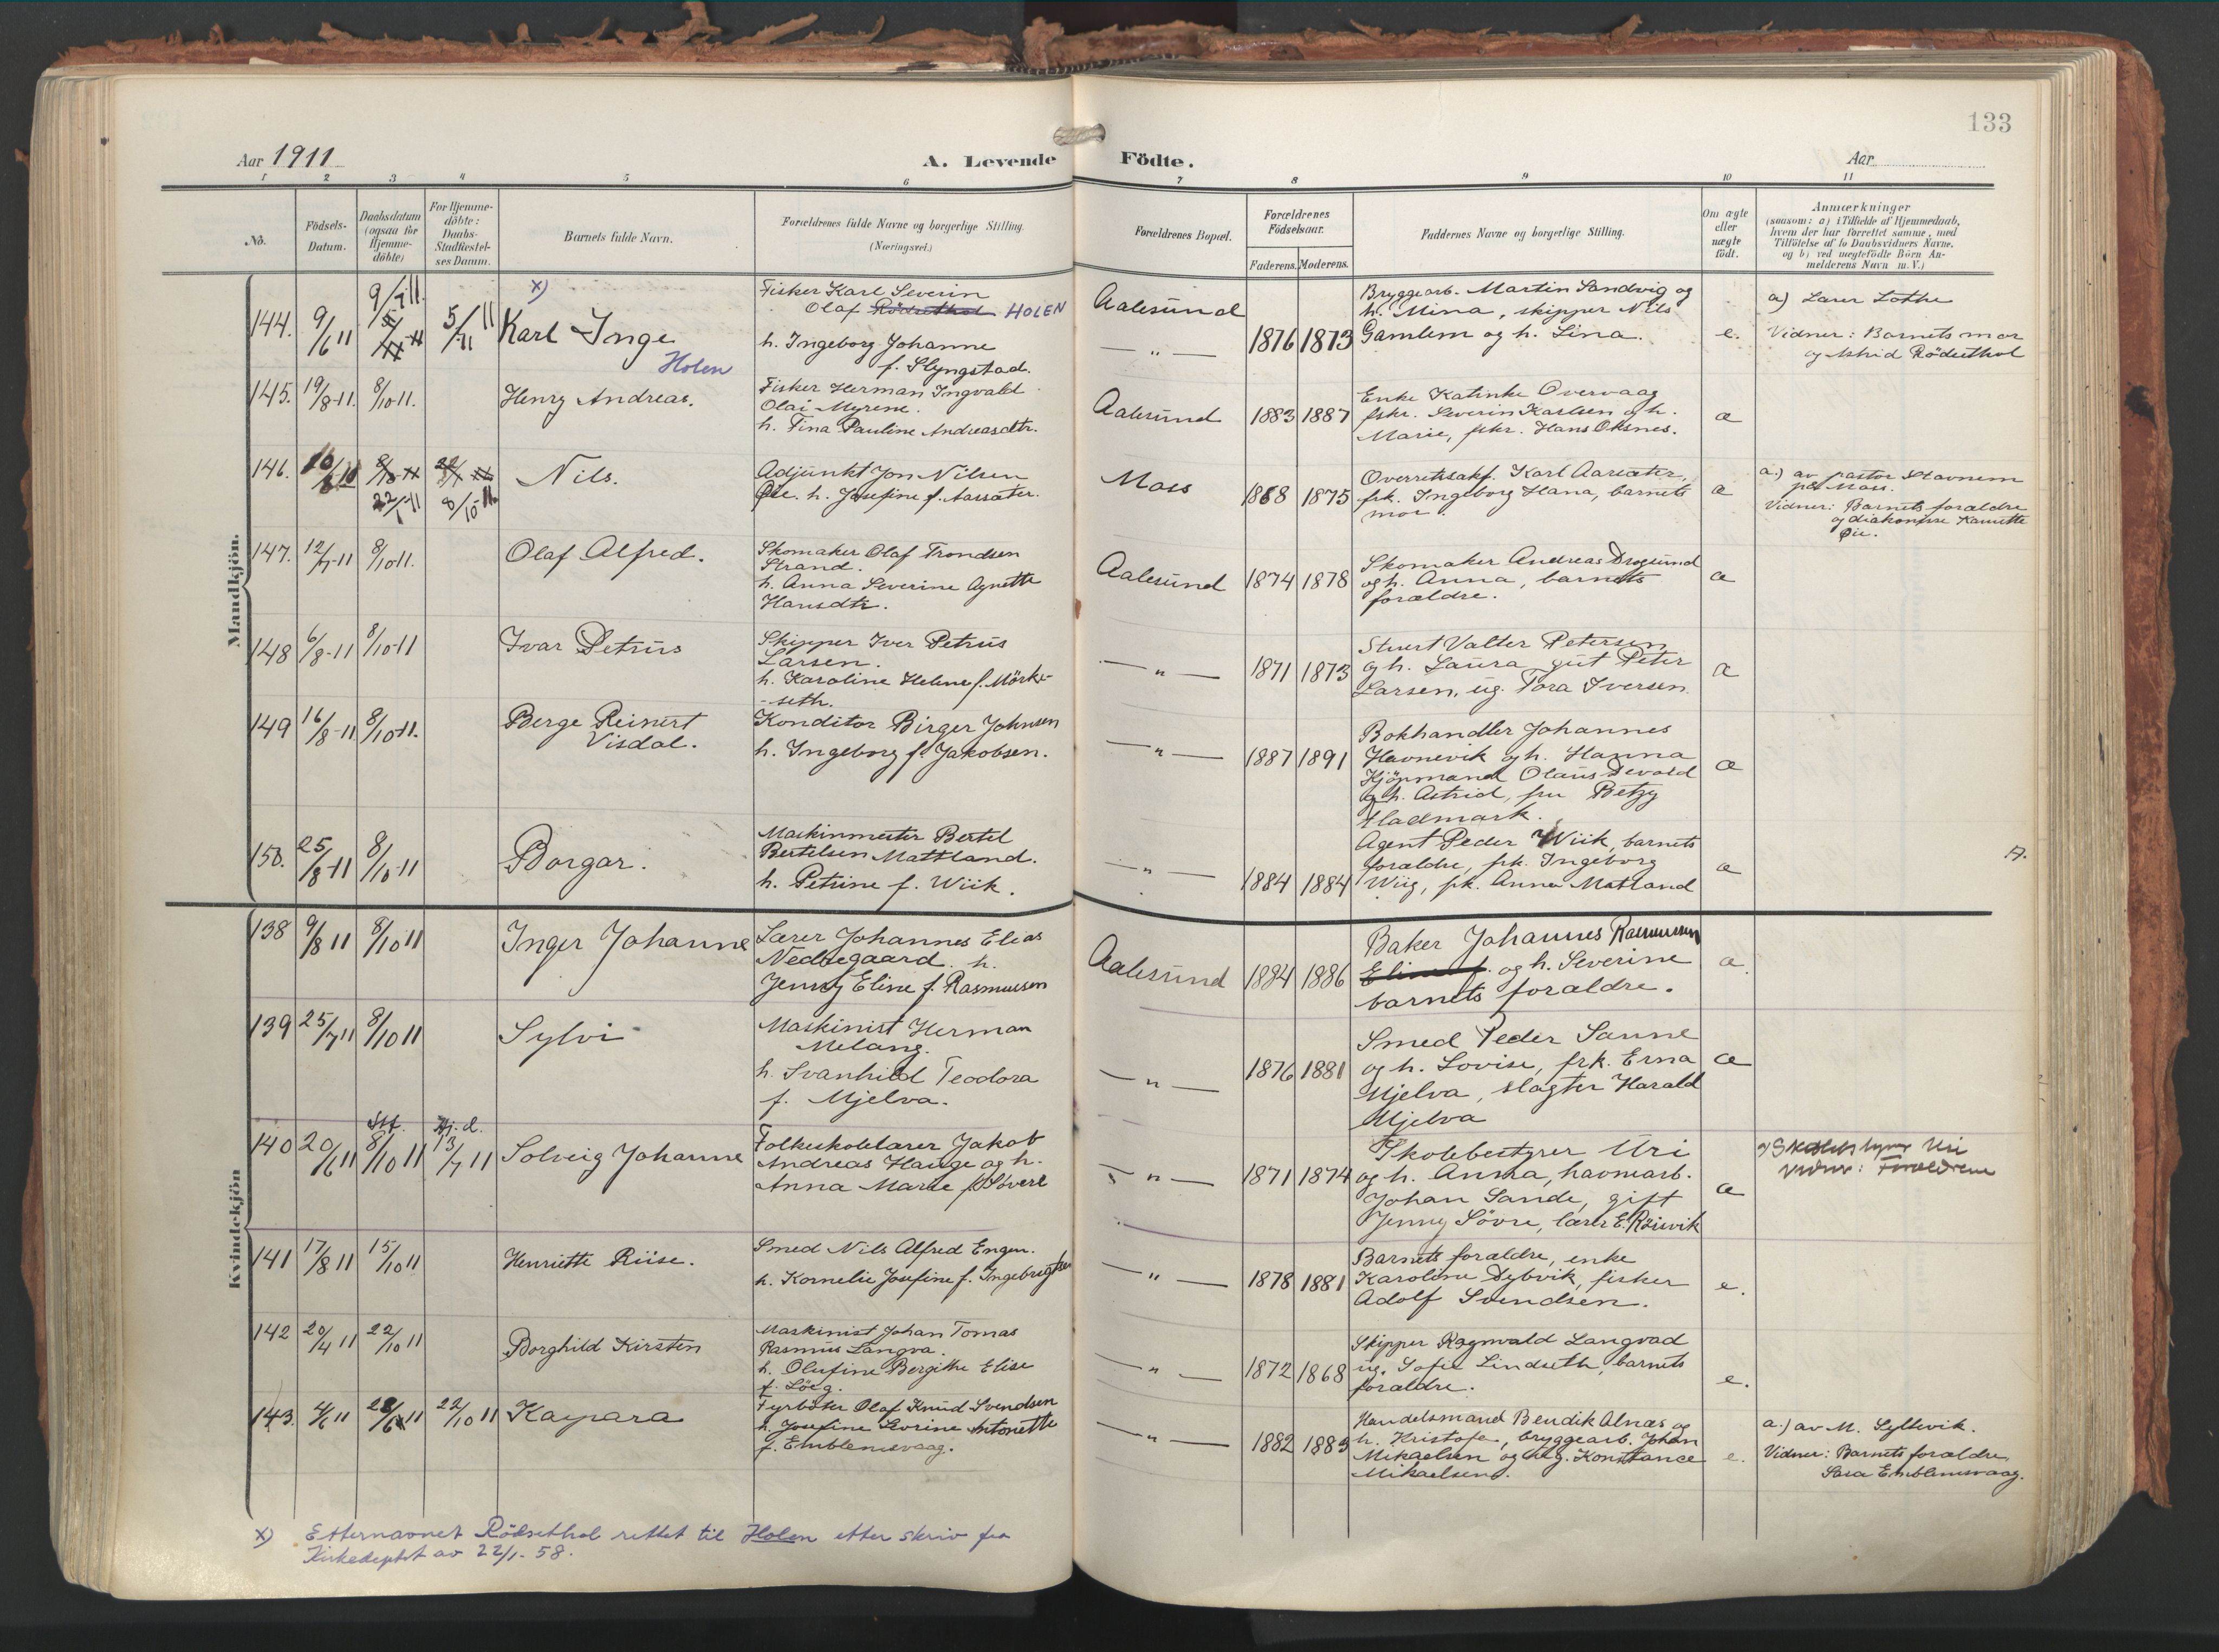 133
Aar 1911
A. Levende Födte.
Aar
1 2 3 4 5 6 7 8 9 10 11
No.
Födsels-Datum.
Daabsdatum (ogsaa for Hjemme-döbte)
For Hjemme-döbte: Daabs-Stadfæstel-ses Datum.
Barnets fulde Navn.
Forældrenes fulde Navne og borgerlige Stilling. (Næringsvei.)
Forældrenes Bopæl.
Forældrenes Födselsaar.
Faderens. Moderens.
Faddernes Navne og borgerlige Stilling.
Om ægte eller uægte födt.
Anmærkninger
(saasom: a) i Tilfælde af Hjemmedaab,
hvem der har forrettet samme, med
Tilföielse af to Daabsvidners Navne.
og b) ved uægtefödte Börn An-
melderens Navn m. V.)
Mandkjön.
144. 9/6 11 9/7 11 5/11 11
x)
Karl Inge
Holen
Fisker Karl Severin
Olaf Rödsethol HOLEN
h. Ingeborg Johanne
f. Slyngstad.
Aalesund
— " —
1876 1873
Bryggearb. Martin Sandvig og
h. Mina, skipper Nils
Gamlem og h. Lina.
e.
a) Lærer Lothe
Vidner: Barnets mor
og Astrid Rödsethol
145. 19/8-11. 8/10-11.
Henry Andreas.
Fisker Herman Ingvald
Olai Myrene.
h. Tina Pauline Andreasdtr.
Aalesund
1883 1887
Enke Katinke Overvaag
fskr. Severin Karlsen og h.
Marie, fskr. Hans Oksnes.
æ
146. 8/10-11 22/1-11 8/10-11.
Nils.
Adjunkt Jon Nilsen
Øie. h. Josefine f. Aarsæter.
Moss
1868 1875
Overretssakf. Karl Aarsæter,
frk. Ingeborg Hana, barnets
mor.
æ
a.) av pastor Stavnem
på Moss.
Vidner: Barnets forældre
og diakonisse
Øie.
147. 12/7-11 8/10-11.
Olaf Alfred.
Skomaker Olaf Trondsen
Strand.
h. Anna Severine Agnette
Hansdtr.
Aalesund
1874 1878
Skomaker Andreas Drogsund
og h. Anna, barnets
forældre.
æ
148 6/8-11 8/10-11
Ivar Petrus
Skipper Iver Petrus
Larsen.
h. Karoline Helene f. Mörk-
seth.
— " —
1871 1873
Stuert Valter Petersen
og h. Laura, gut Peter
Larsen, ug. Tora Iversen
æ
149 16/8-11 8/10-11.
Berge Reinert
Visdal.
Konditor Birger Johnsen
h. Ingeborg f. Jakobsen.
— " —
1887 1891
Bokhandler Johannes
Havnevik og h. Hanna
Kjöpmand Olaus Devold
og h. Astrid, fru Betzy
Hadmark.
æ
150. 25/8-11 8/10-11
Borgar.
Maskinmester Bertel
Bertelsen Mattland.
h. Petrine f. Wiik.
— " —
1884 1884
Agent Peder Wiik, barnets
forældre, frk. Ingeborg
Wiig, frk. Anna Matland
æ
Kvindekjön
138 9/8 11 8/10 11
Inger Johanne
Lærer Johannes Elias
Nedregaard. h.
Jenny Eline f. Rasmussen
Aalesund
1884 1886
Baker Johannes Rasmussen
og h. Severine
barnets forældre.
æ.
139 25/7 11 8/10 11
Sylvi
Maskinist Herman
Melang.
h. Svanhild Teodora
f. Mjelva.
— " —
1876 1881
Smed Peder Sanne
og h. Lovise, frk. Erna
Mjelva, slagter Harald
Mjelva
æ
Stf. Hj.d.
140 20/6 11 8/10 11 13/7 11
Solveig Johanne
Folkeskolelærer Jakob
Andreas Hauge og h.
Anna Marie f. Søvere
— " —
1871 1874
Skolebestyrer Uri
og h. Anna, havnearb.
Johan Sande, gift
Jenny Søvre, lærer E. Røsvik
æ
a) Skolebestyrer Uri
Vidner: Forældrene
141 17/8 11 15/10 11
Henriette Riise.
Smed Nils Alfred Engen.
h. Kornelie Josefine f. Ingebrigtsen
— " —
1878 1881
Barnets forældre, enke
Karoline Dybvik, fisker
Adolf Svendsen.
e.
142 20/4 11 22/10 11
Borghild Kirsten
Maskinist Johan Tomas
Rasmus Langva.
h. Olufine Bergithe Elise
f. Löeg.
— " —
1872 1868
Skipper Ragnvald Langvad
ug. Sofie Lindseth, barnets
forældre.
e.
143. 4/6 11 28/6 11 22/10 11
Kaspara
Fyrböter Olaf Knud Svendsen
h. Josefine Severine Antonette
f. Emblemsvaag.
— " —
1882 1885
Handelsmand Bendik Alnæs og
h. Kristofa, bryggearb. Johan
Mikaelsen og ug. Konstance
Mikaelsen.
e.
a.) av M. Syltevik.
Vidner: Barnets forældre,
Sara Emblemsvaag.
x) Etternavnet Rödsethol rettet til Holen etter skriv fra
Kirkedeptet av 22/1-58.